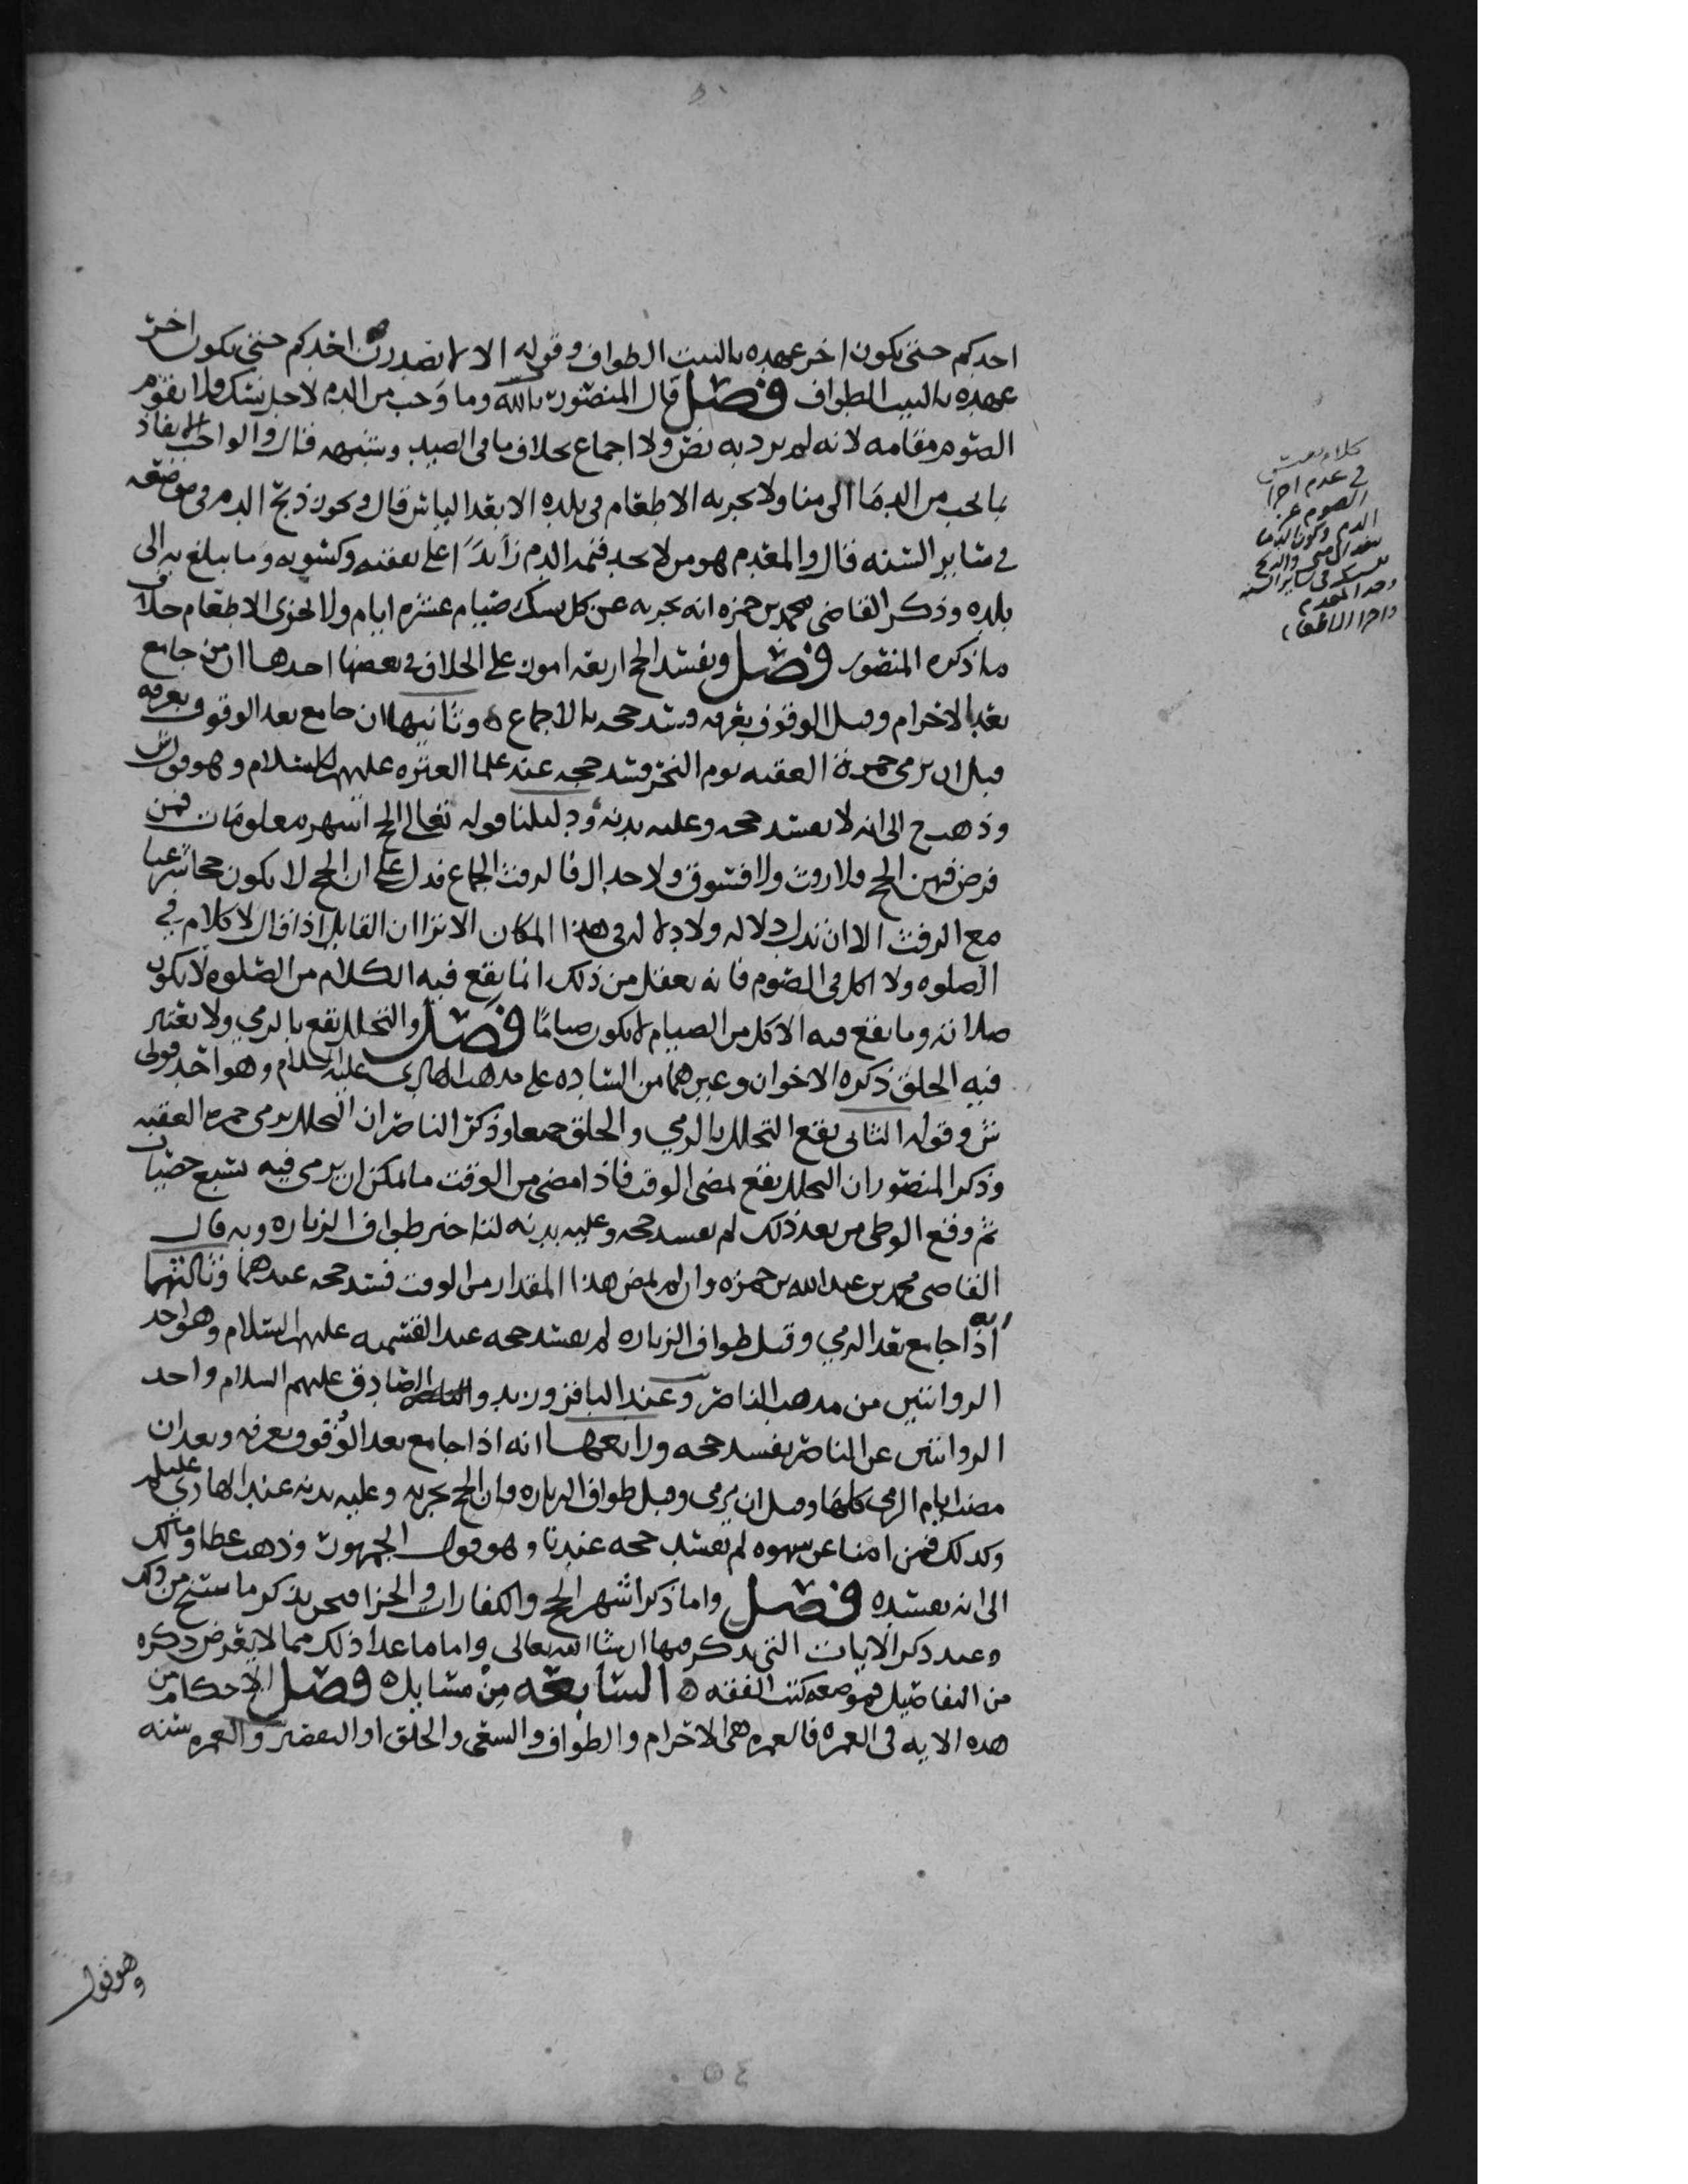 احدكم حتى يكون اخر عهده بالبيت الطواف وقوله الا لا يصدرن احدكم حتى يكون اخر
عهده بالبيت الطواف فصل قال المنصور بالله وما وجب من الدم لاجل نسك ولا يقوم
الصوم مقامه لانه لم يرد به نص ولا اجماع بخلاف ما في الصيد وشبهه قال والواجب انفاذ
ما يجب من الدما الى منا ولا يجزيه الاطعام في بلده الا بعد الياس قال ويجوز ذبح الدم في موضعه
في ساير السنه قال والمعدم هو من لا يجد قيمه الدم زآيدًا على نفقته وكسوته وما يبلغ به الى
بلده وذكر القاضي محمد بن حمزه انه يجزيه عن كل نسك صيام عشره ايام ولا يجزي الاطعام خلاف
ما ذكره المنصور فصل ويفسد الحج اربعه امور على الخلاف في بعضها احدها ان من جامع
بعد الاحرام وقبل الوقوف بعرفه فسد حجه بالاجماع ه وثانيها ان جامع بعد الوقوف بعرفه
قبل ان يرمي جمرة العقبه يوم النحر فسد حجه عند علما العتره عليهم السلام وهو قول ش
وذهب ح الى انه لا يفسد حجه وعليه بدنه ودليلنا قوله تعالى الحج اشهر معلومات فمن
فرض فيهن الحج فلا رفث ولا فسوق ولا جدال فالرفث الجماع فدل على ان الحج لا يكون حجا شرعيا
مع الرفث الا ان تدل دلاله ولا دلاله في هذا المكان الا ترا ان القايل اذا قال لا كلام في
الصلوه ولا اكل في الصوم فانه يعقل من ذلك انما يقع فيه الكلام من الصلوه لا يكون
صلاته وما يقع فيه الاكل من الصيام لا يكون صيامًا فصل والتحلل يقع بالرمي ولا يعتبر
فيه الحلق ذكره الاخوان وغيرهما من الساده على مذهب الهادي عليه السلام وهو احد قولى
ش وقوله الثاني يقع التحلل بالرمي والحلق جمعا وذكر الناصر ان التحلل برمي جمره العقبه
وذكر المنصور ان التحلل يقع بمضي الوقت فاذا مضى من الوقت ما يمكن ان يرمي فيه بسبع حصيات
ثم وقع الوطي من بعد ذلك لم يفسد حجه وعليه بدنه لتاخير طواف الزياره وبه قال
القاضي محمد بن عبدالله بن حمزه وان لم يمض هذا المقدار من الوقت فسد حجه عندهما وثالثها
انه اذا جامع بعد الرمي وقبل طواف الزياره لم يفسد حجه عند القسميه عليهم السلام وهو احد
الروايتين من مذهب الناصر وعند الباقر وزيد والصادق عليهم السلام واحد
الروايتين عن الناصر يفسد حجه ورابعها انه اذا جامع بعد الوقوف بعرفه وبعد ان
مضت ايام الرمي كلها وقبل ان يرمي وقبل طواف الزياره فان الحج يجزيه وعليه بدنه عند الهادي عليلم
وكذلك فمن امنا عن شهوه لم يفسد حجه عندنا وهو قول الجمهور وذهب عطا ومالك
الى انه يفسده فصل واما ذكر اشهر الحج والكفارات والجزا فنحن نذكر ما سنح من ذلك
وعند ذكر الايات التي يذكر فيها ان شا الله تعالى واما ما عدا ذلك مما لا يعرض ذكره
من التفاصيل فموضعه كتب الفقه ه السابعه من مسايله فصل الاحكام من
هذه الايه في العمره فالعمره هي الاحرام والطواف والسعي والحلق او التقصير والعمره سنه
وهو قول
كلام
في عدم اجزا
الصوم عن
الدم وكون الدما
ساير السنه
وحد المعدم
واجزا الاطعام
٥٤